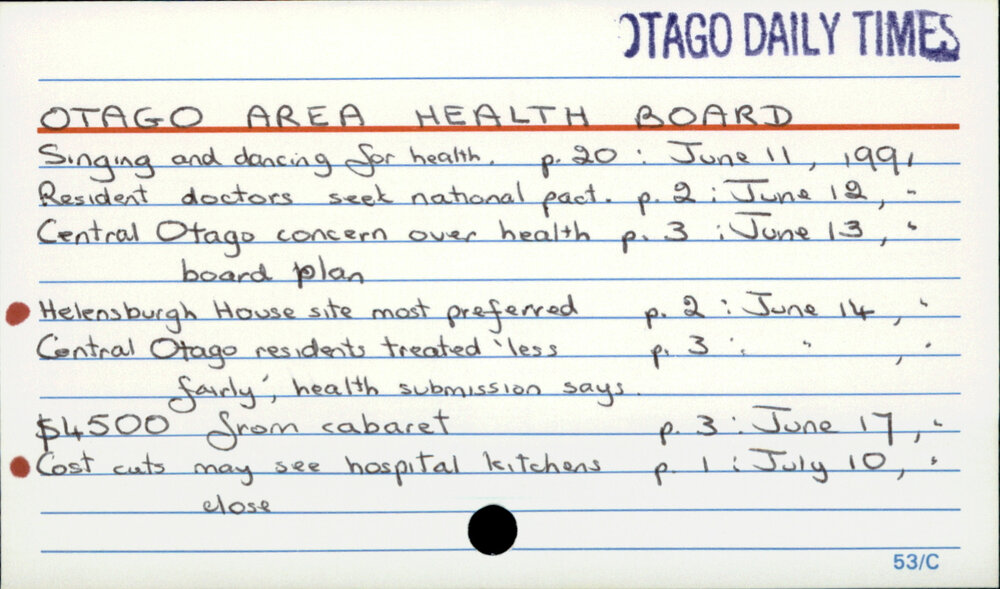 OTAGO DAILY TIMES
OTAGO AREA HEALTH BOARD
Singing and dancing for health. p. 20 : June 11, 1991
Resident doctors seek national pact. p. 2 : June 12, "
Central Otago concern over health p. 3 : June 13, "
board plan
Helensburgh House site most preferred p. 2 : June 14, "
Central Otago residents treated 'less p. 3 : " , "
fairly', health submission says.
$4500 from cabaret p. 3 : June 17, "
Cost cuts may see hospital kitchens p. 1 : July 10, "
close
53/C